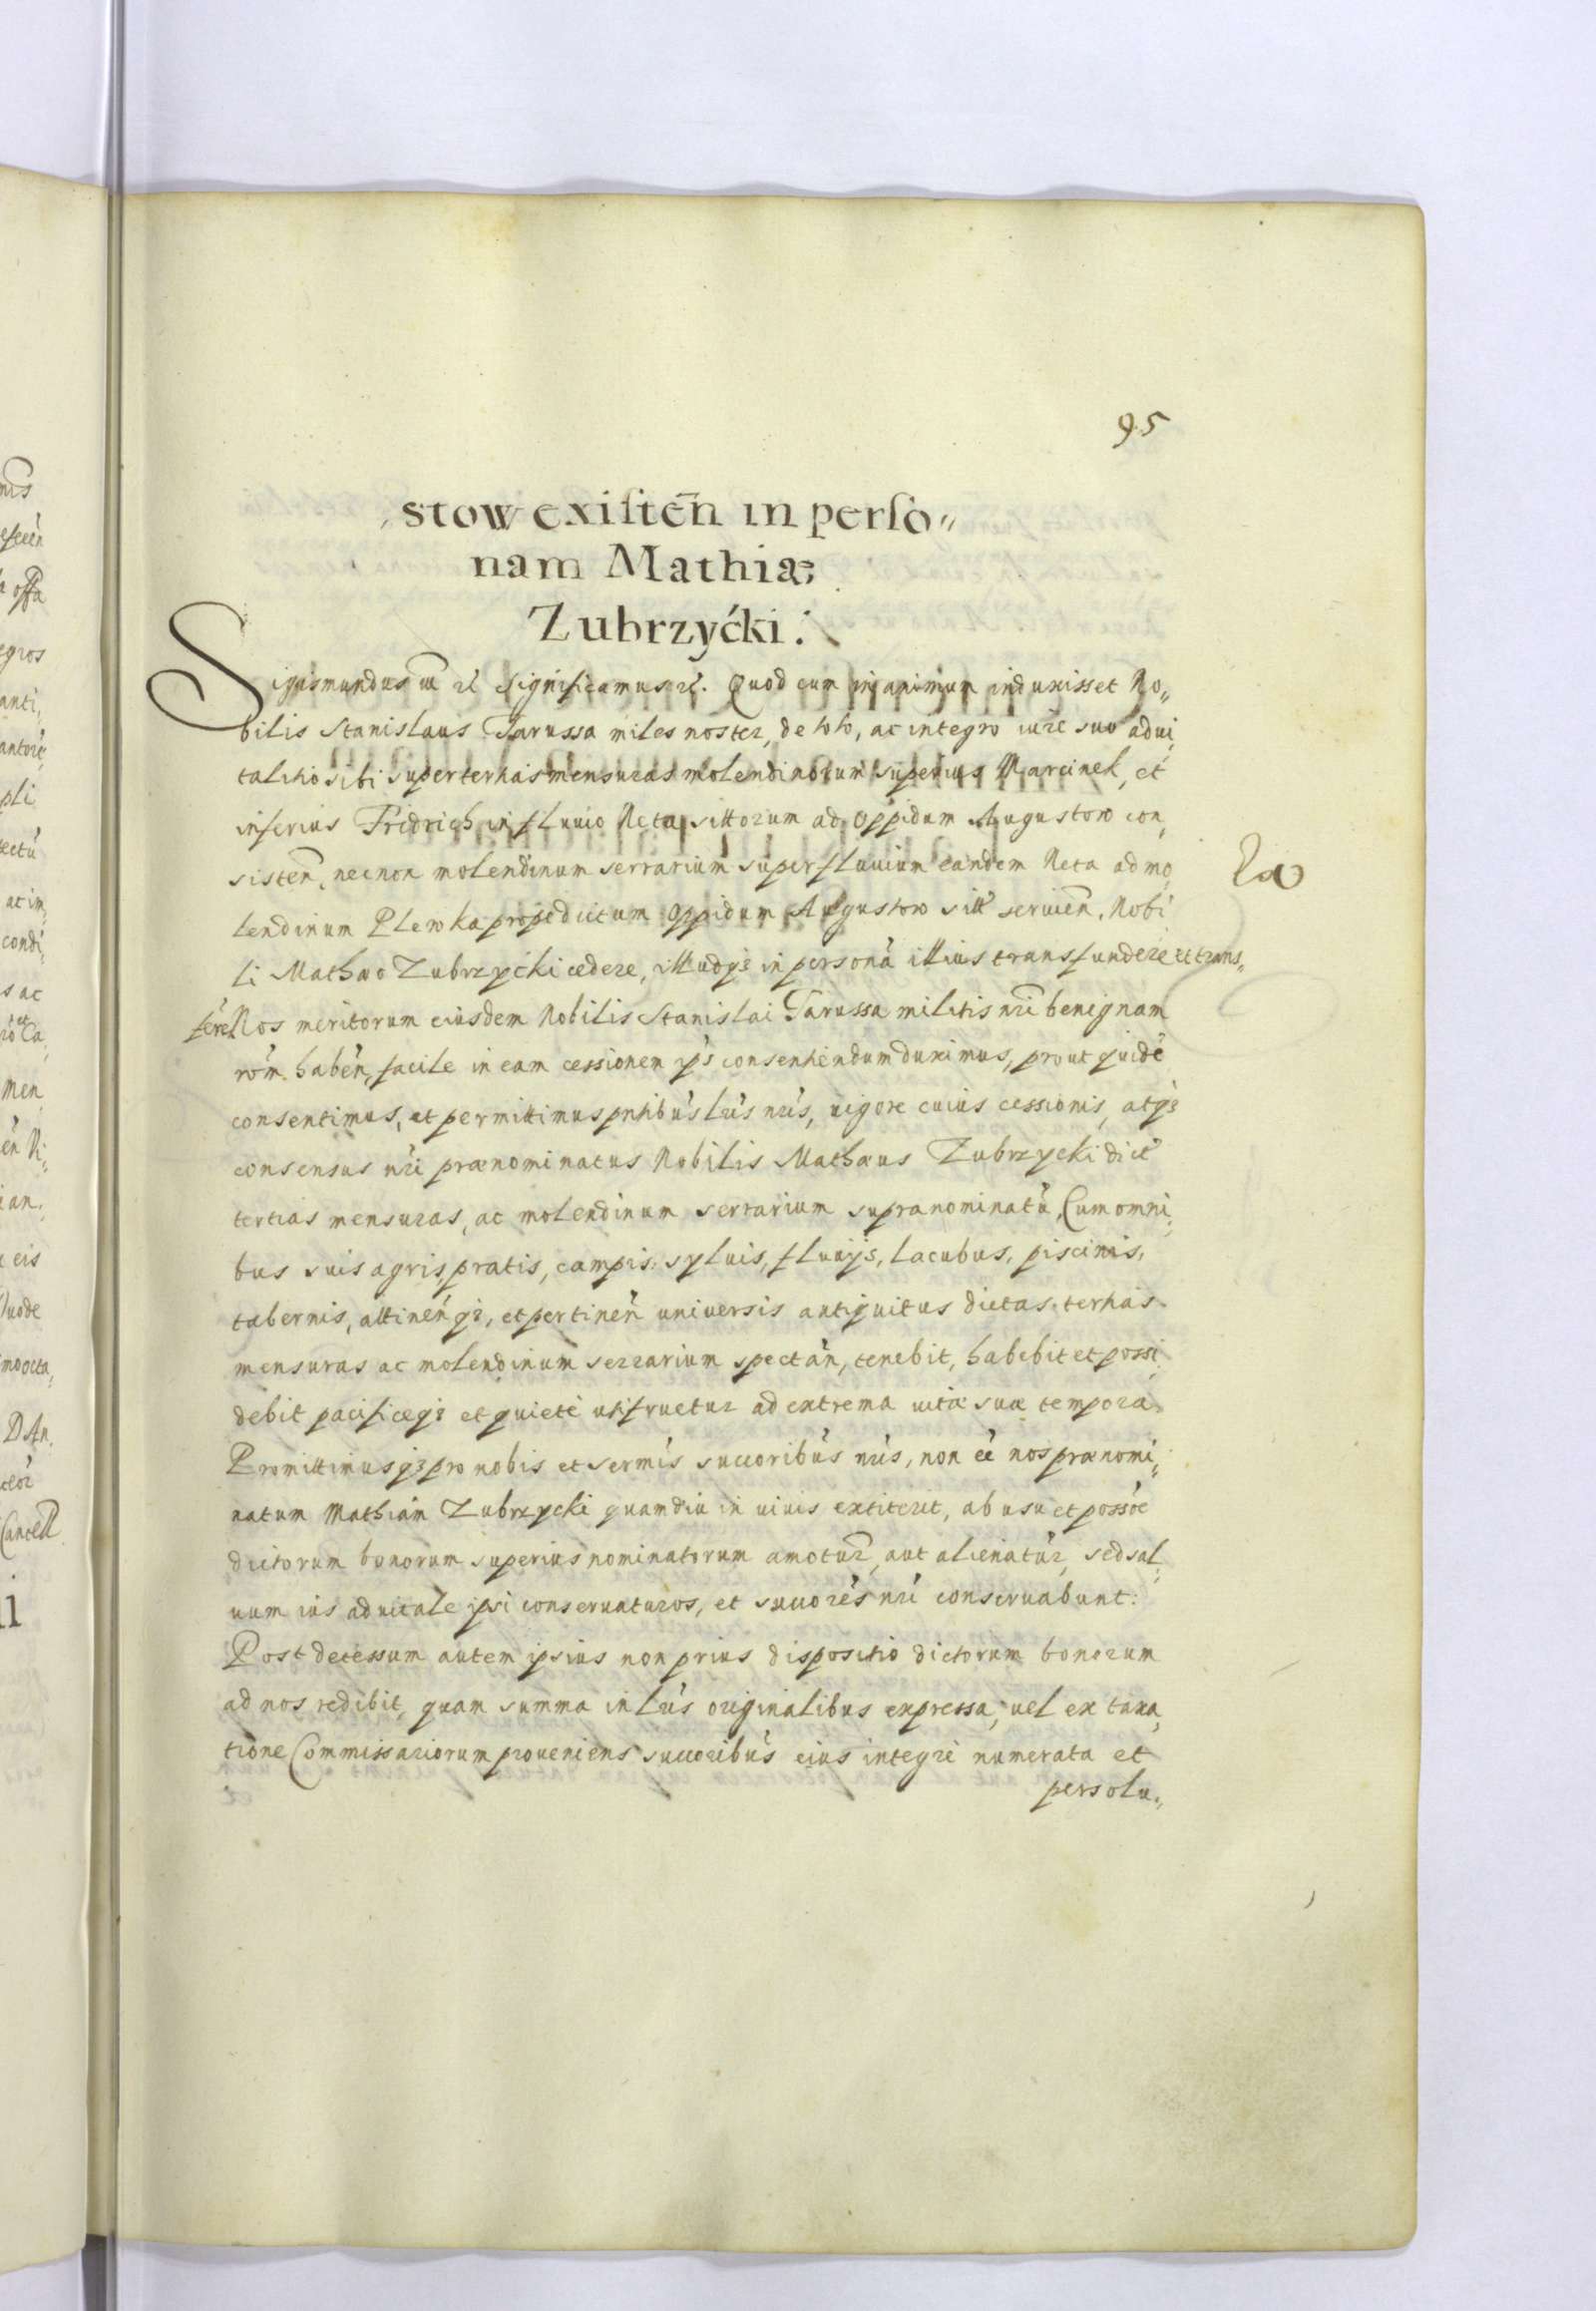 95
stow existen̄ in perso„
nam Mathiæ
Zubrzyćki.
Sigismundus etc. Significamus etc. Quod cum in animum induxisset No„
bilis Stanislaus Tarussa miles noster, de toto, ac integro iure suo adui,
talitio sibi super tertias mensuras molendinorum superius Marcinek, et
inferius Fridrich in fluuio Neta sittorum ad oppidum Augustow con,
sisten̄, necnon molendinum serrarium super fluuium eandem Neta ad mo,
lendinum Plewka prope dictum oppidum Augustow sitt seruien̄, Nobi
li Mathæo Zubrzyćki cedere, illudq3 in personā illius transfundere et trans„
ferre Nos meritorum eiusdem Nobilis Stanislai Tarussa militis nr̄i benignam
rōm habēn, facile in eam cessionem ips consentiendum duximus, prout quidē
consentimus, et permittimus pntibus lr̄is nr̄is, uigore cuius cessionis, atq3
consensus nr̄i prænominatus Nobilis Mathæus Zubrzycki dict
tertias mensuras, ac molendinum serrarium supranominatū, Cum omni„
bus suis agris, pratis, campis, syluis, fluuijs, lacubus, piscinis,
tabernis, attinen̄q3, et pertinen̄ uniuersis antiquitus dictas tertias
mensuras ac molendinum serrarium spectān, tenebit, habebit et possi,
debit pacificeq3 et quietè utifruetur ad extrema uitæ suæ tempora.
Promittimusq3 pro nobis et sermīs succoribus nr̄is, non eē nos prænomi„
natum Mathiam Zubrzycki quamdiu in uiuis extiterit, ab usu et possōe
dictorum bonorum superius nominatorum amotur̄, aut alienatūr, sed sal„
uum ius aduitale ipsi conseruaturos, et succorēs nr̄i conseruabunt:
Post decessum autem ipsius non prius dispositio dictorum bonorum
ad nos redibit, quam summa in lr̄is originalibus expressa, uel ex taxa,
tione Commissariorum proueniens succoribus eius integrè numerata et
persolu„